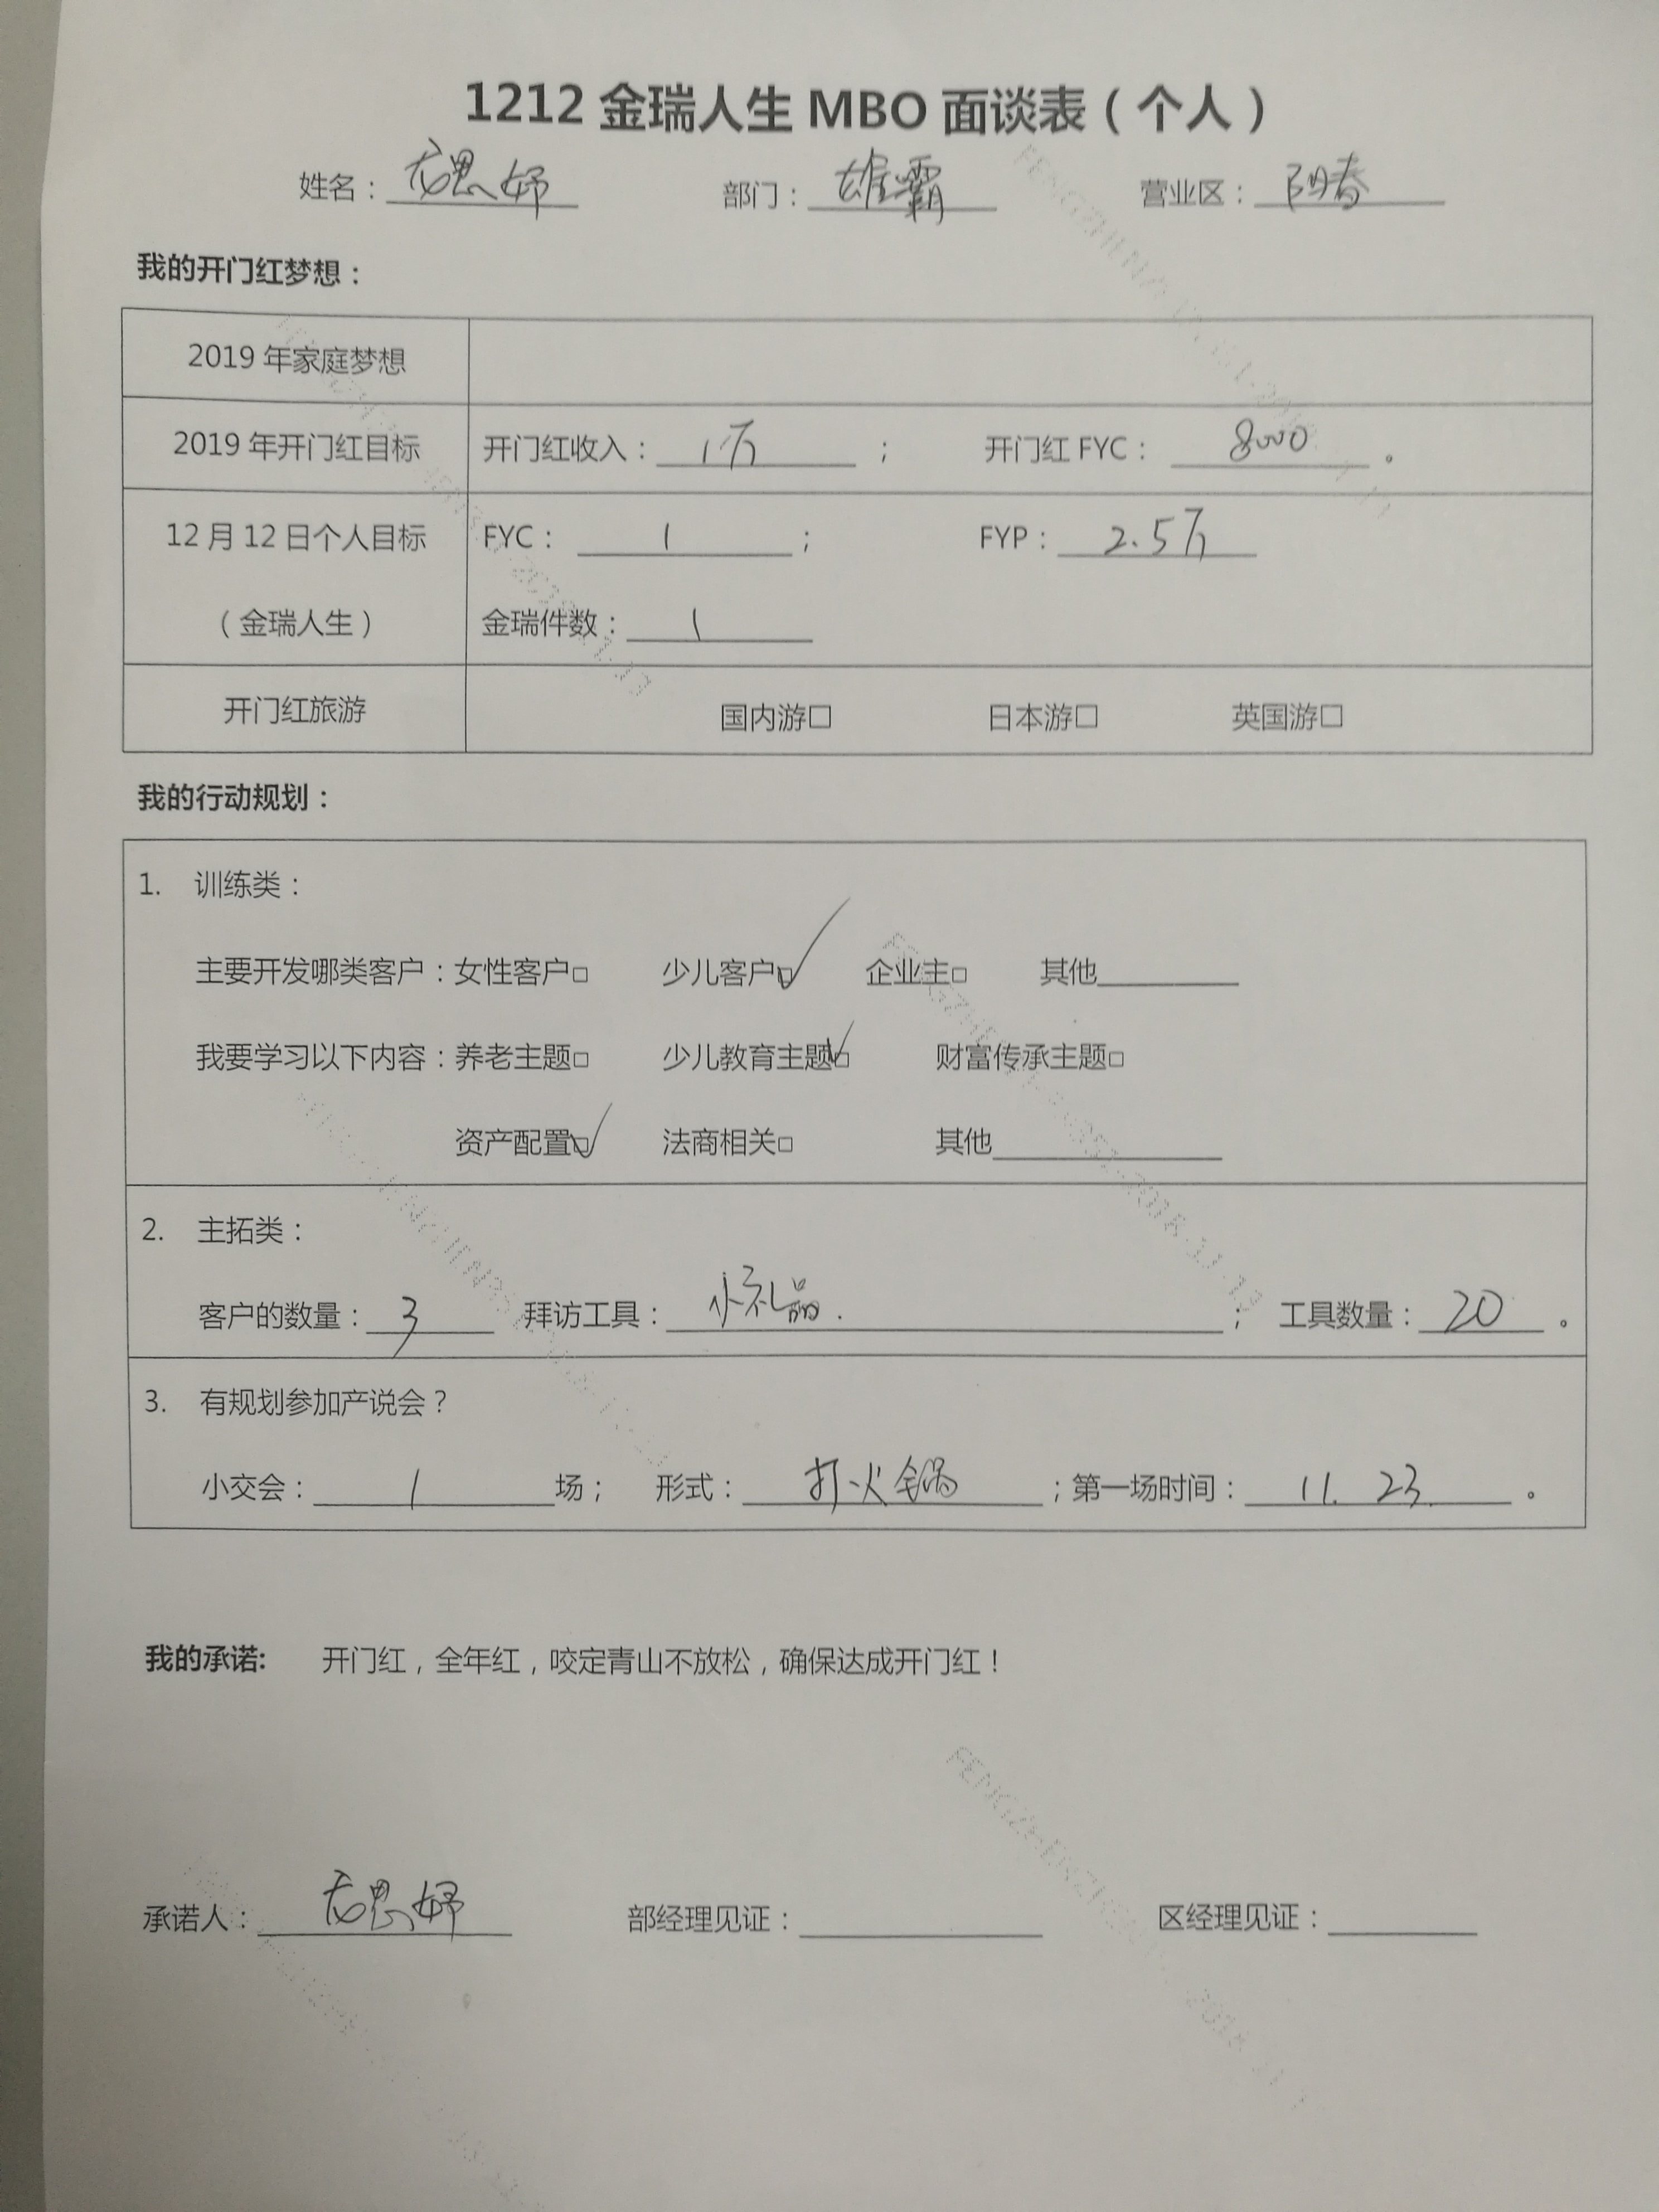 1212 金瑞人生 MBO 面谈表（个人）
姓名： 龙思妤 部门： 雄霸 营业区： 阳春
我的开门红梦想：
2019 年家庭梦想
2019 年开门红目标 开门红收入： 1万 ； 开门红 FYC： 8000 。
12 月 12 日个人目标 FYC： 1 ； FYP： 2.5万
（金瑞人生） 金瑞件数： 1
开门红旅游 国内游□ 日本游□ 英国游□
我的行动规划：
1. 训练类：
主要开发哪类客户：女性客户□ 少儿客户☑ 企业主□ 其他
我要学习以下内容：养老主题□ 少儿教育主题☑ 财富传承主题□
资产配置☑ 法商相关□ 其他
2. 主拓类：
客户的数量： 3 拜访工具： 小礼品. ； 工具数量： 20 。
3. 有规划参加产说会？
小交会： 1 场； 形式： 打火锅 ；第一场时间： 11. 23. 。
我的承诺: 开门红，全年红，咬定青山不放松，确保达成开门红！
承诺人： 龙思妤 部经理见证： 区经理见证：